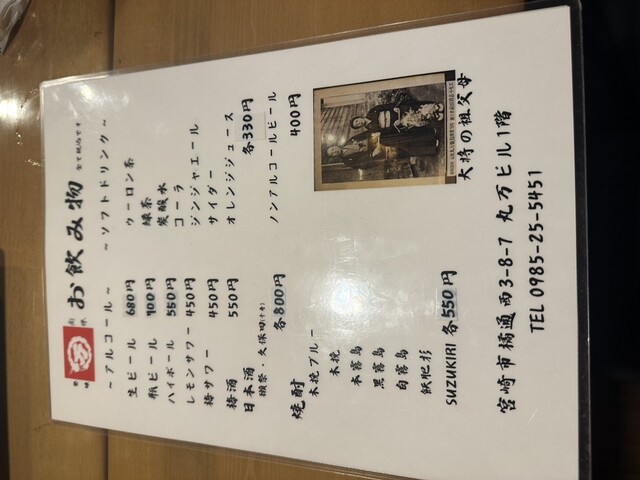 お飲み物
全て税込です
～アルコール～
生ビール 680円
瓶ビール 700円
ハイボール 550円
レモンサワー 450円
梅サワー 450円
梅酒 550円
日本酒
獺祭・久保田(千寿)
各800円
焼酎
木挽ブルー
木挽
本霧島
黒霧島
白霧島
飫肥杉
SUZUKIRI 各550円
～ソフトドリンク～
ウーロン茶
緑茶
炭酸水
コーラ
ジンジャエール
サイダー
オレンジジュース
各330円
ノンアルコールビール
400円
大将の祖父母
宮崎市橘通西3-8-7 丸万ビル1階
TEL 0985-25-5451